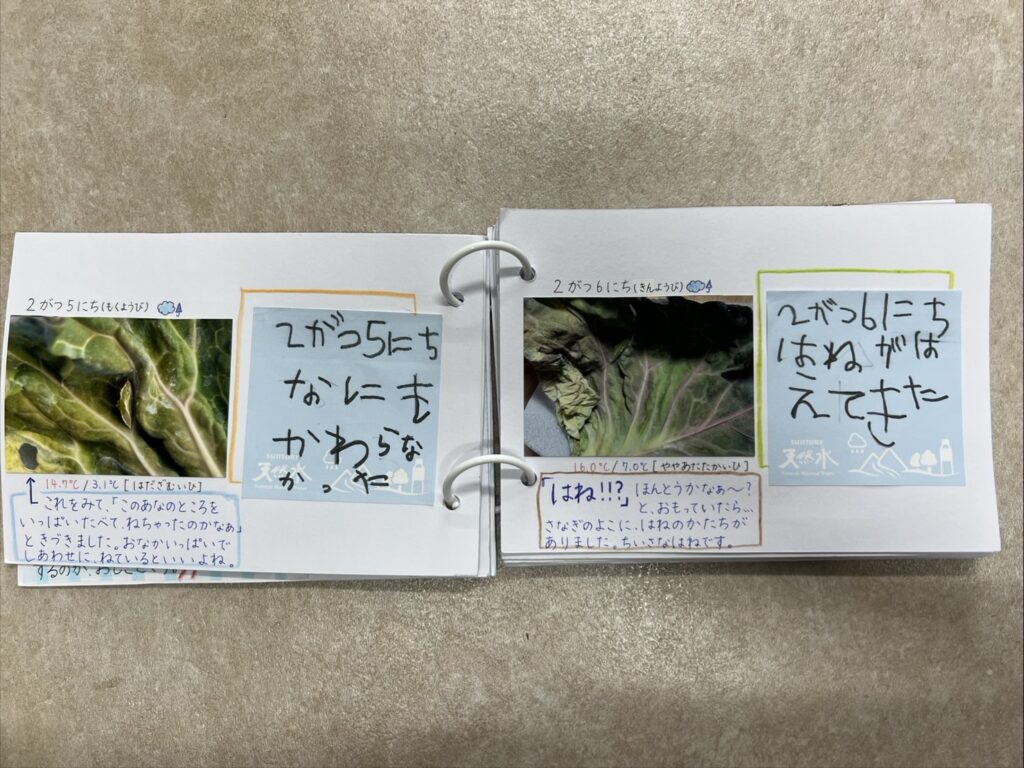 2がつ5にち(もくようび)
2がつ5にち
なにも
かわらな
かった
SUNTORY
天然水
14.7℃/3.1℃[はだざむいひ]
これをみて、「このあなのところを
いっぱいたべて、ねちゃったのかなぁ」
ときづきました。おなかいっぱいで
しあわせに、ねているといいよね。
2がつ6にち(きんようび)
2がつ6にち
はねがは
えてきた
SUNTORY
天然水
16.0℃/7.0℃[ややあたたかいひ]
「はね!!?」ほんとうかなぁ〜?
と、おもっていたら…
さなぎのよこに、はねのかたちが
ありました。ちいさなはねです。